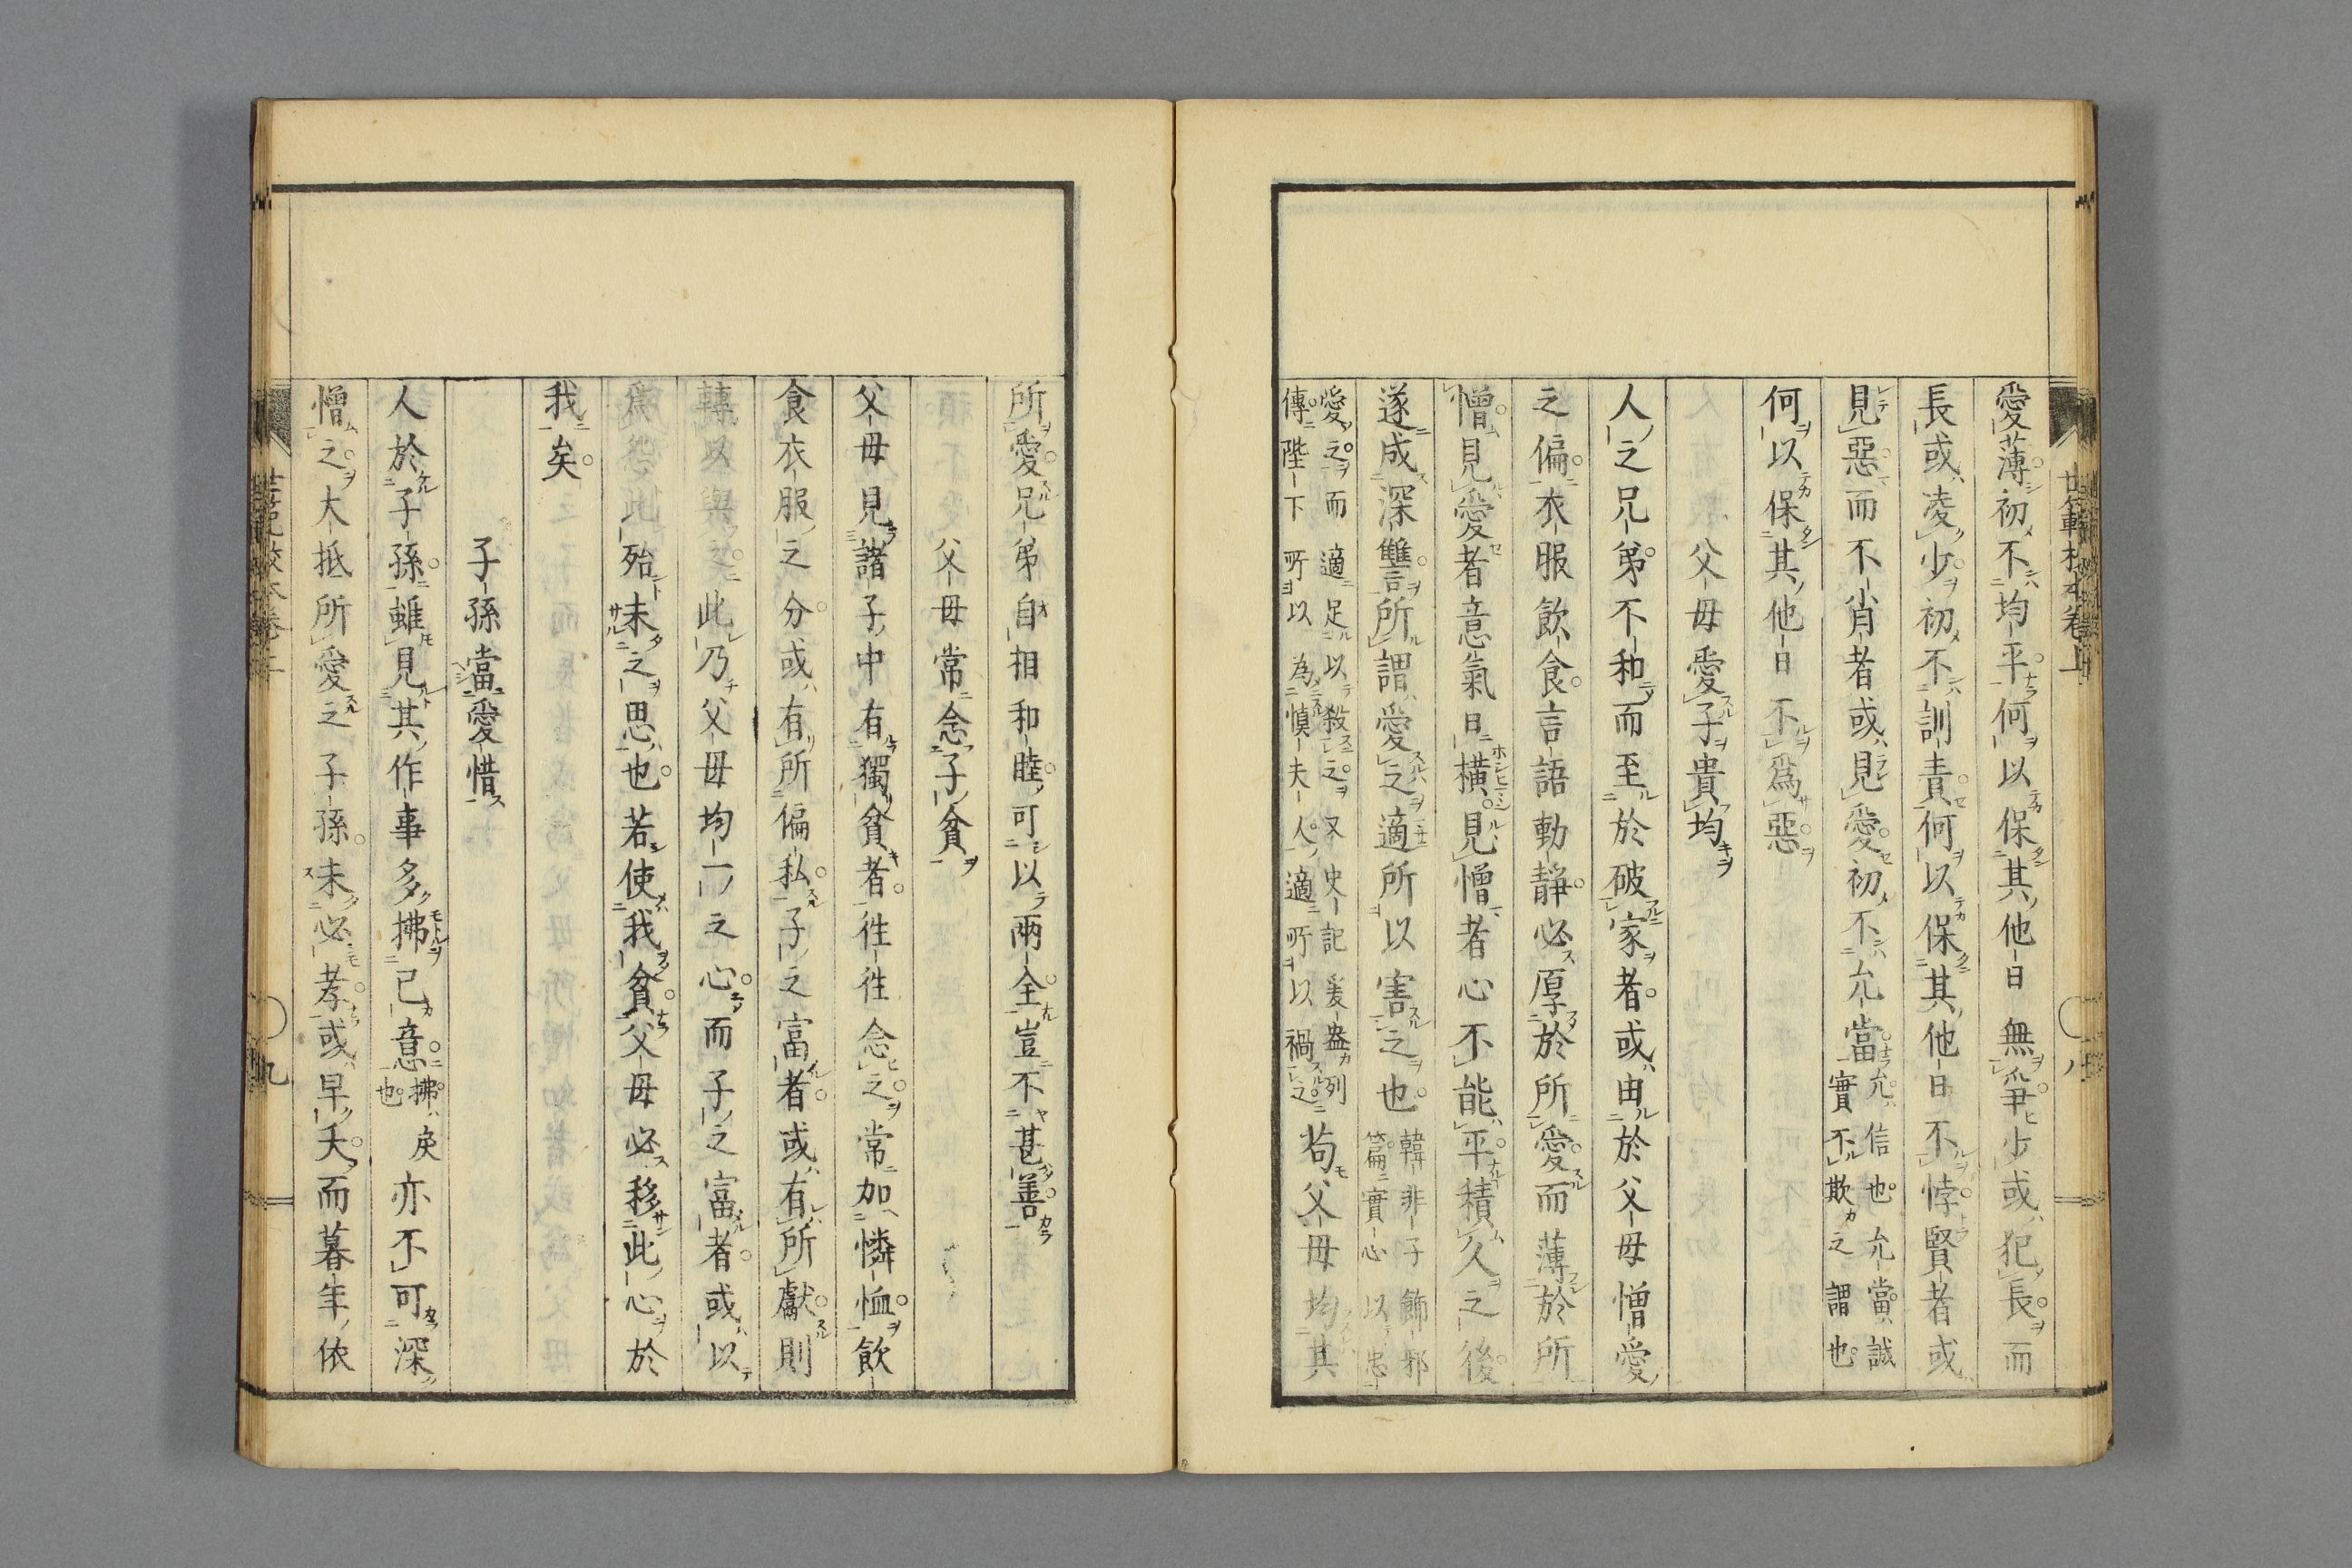 愛薄初不均平何以保其他日無爭少或犯長而
長或凌少初不訓責何以保其他日不悖賢者或
見惡而不肖者或見愛初不允當允信也允當誠實不欺之謂也
何以保其他日不爲惡
父母愛子貴均
人之兄弟不和而至於破家者或由於父母憎愛
之偏衣服飲食言語動靜必厚於所愛而薄於所
憎見愛者意氣日橫見憎者心不能平積久之後
遂成深讐所謂愛之適所以害之也韓非子飾邪篇實心以忠
愛之而適足以殺之又史記爰盎列傳陛下所以為慎夫人適所以禍之苟父母均其
所愛兄弟自相和睦可以兩全豈不甚善
父母常念子貧
父母見諸子中有獨貧者徃徃念之常加憐恤飲
食衣服之分或有所偏私子之富者或有所獻則
轉以與之此乃父母均一之心而子之富者或以
爲怨此殆未之思也若使我貧父母必移此心於
我矣
子孫當愛惜
人於子孫雖見其作事多拂己意拂戾也亦不可深
憎之大抵所愛之子孫未必孝或早夭而暮年依